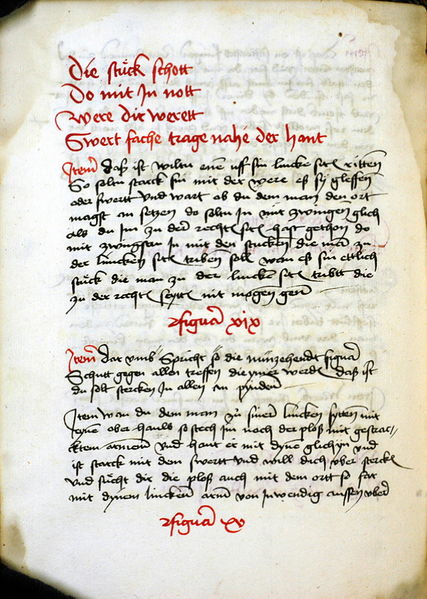 Die stuck schott
Do mit Jn nott
Were dir werett
Swert fache trage nahe der hant
Item daß ist wiltu eine uff sin lincke sitt ritten
So soltu starck sin mit der were eß sy gleffen
oder swertt und wart ob du dem man den ort
magst an setzen do soltu in mit zwingen glich
als du im zu der rechte sitt hast gethon do
mit zwingstu in mit den stucken die man zu
der lincken sitt triben soll wan eß sin ettlich
stuck die man zu der lincke sitt tribtt die
zu der rechte sytt nit mögen gen
Figura xix
Item dar umb spricht so die nünzehendt figura
Schutt gegen allen treffen die ymer werdt daß ist
du solt stercken in allen an pinden
Item wan du dem man zu siner lincken sytten mit
eyne ober hauw so stech im noch der ploß mit gestrac
ktem armen und haut er mit dyne glichyn und
ist starck mit dem swertt und will dich uber sterck
und sücht die die ploß auch mit dem ort so far
mit dynem lincken arm von inwendig aussen uber
Figura xx